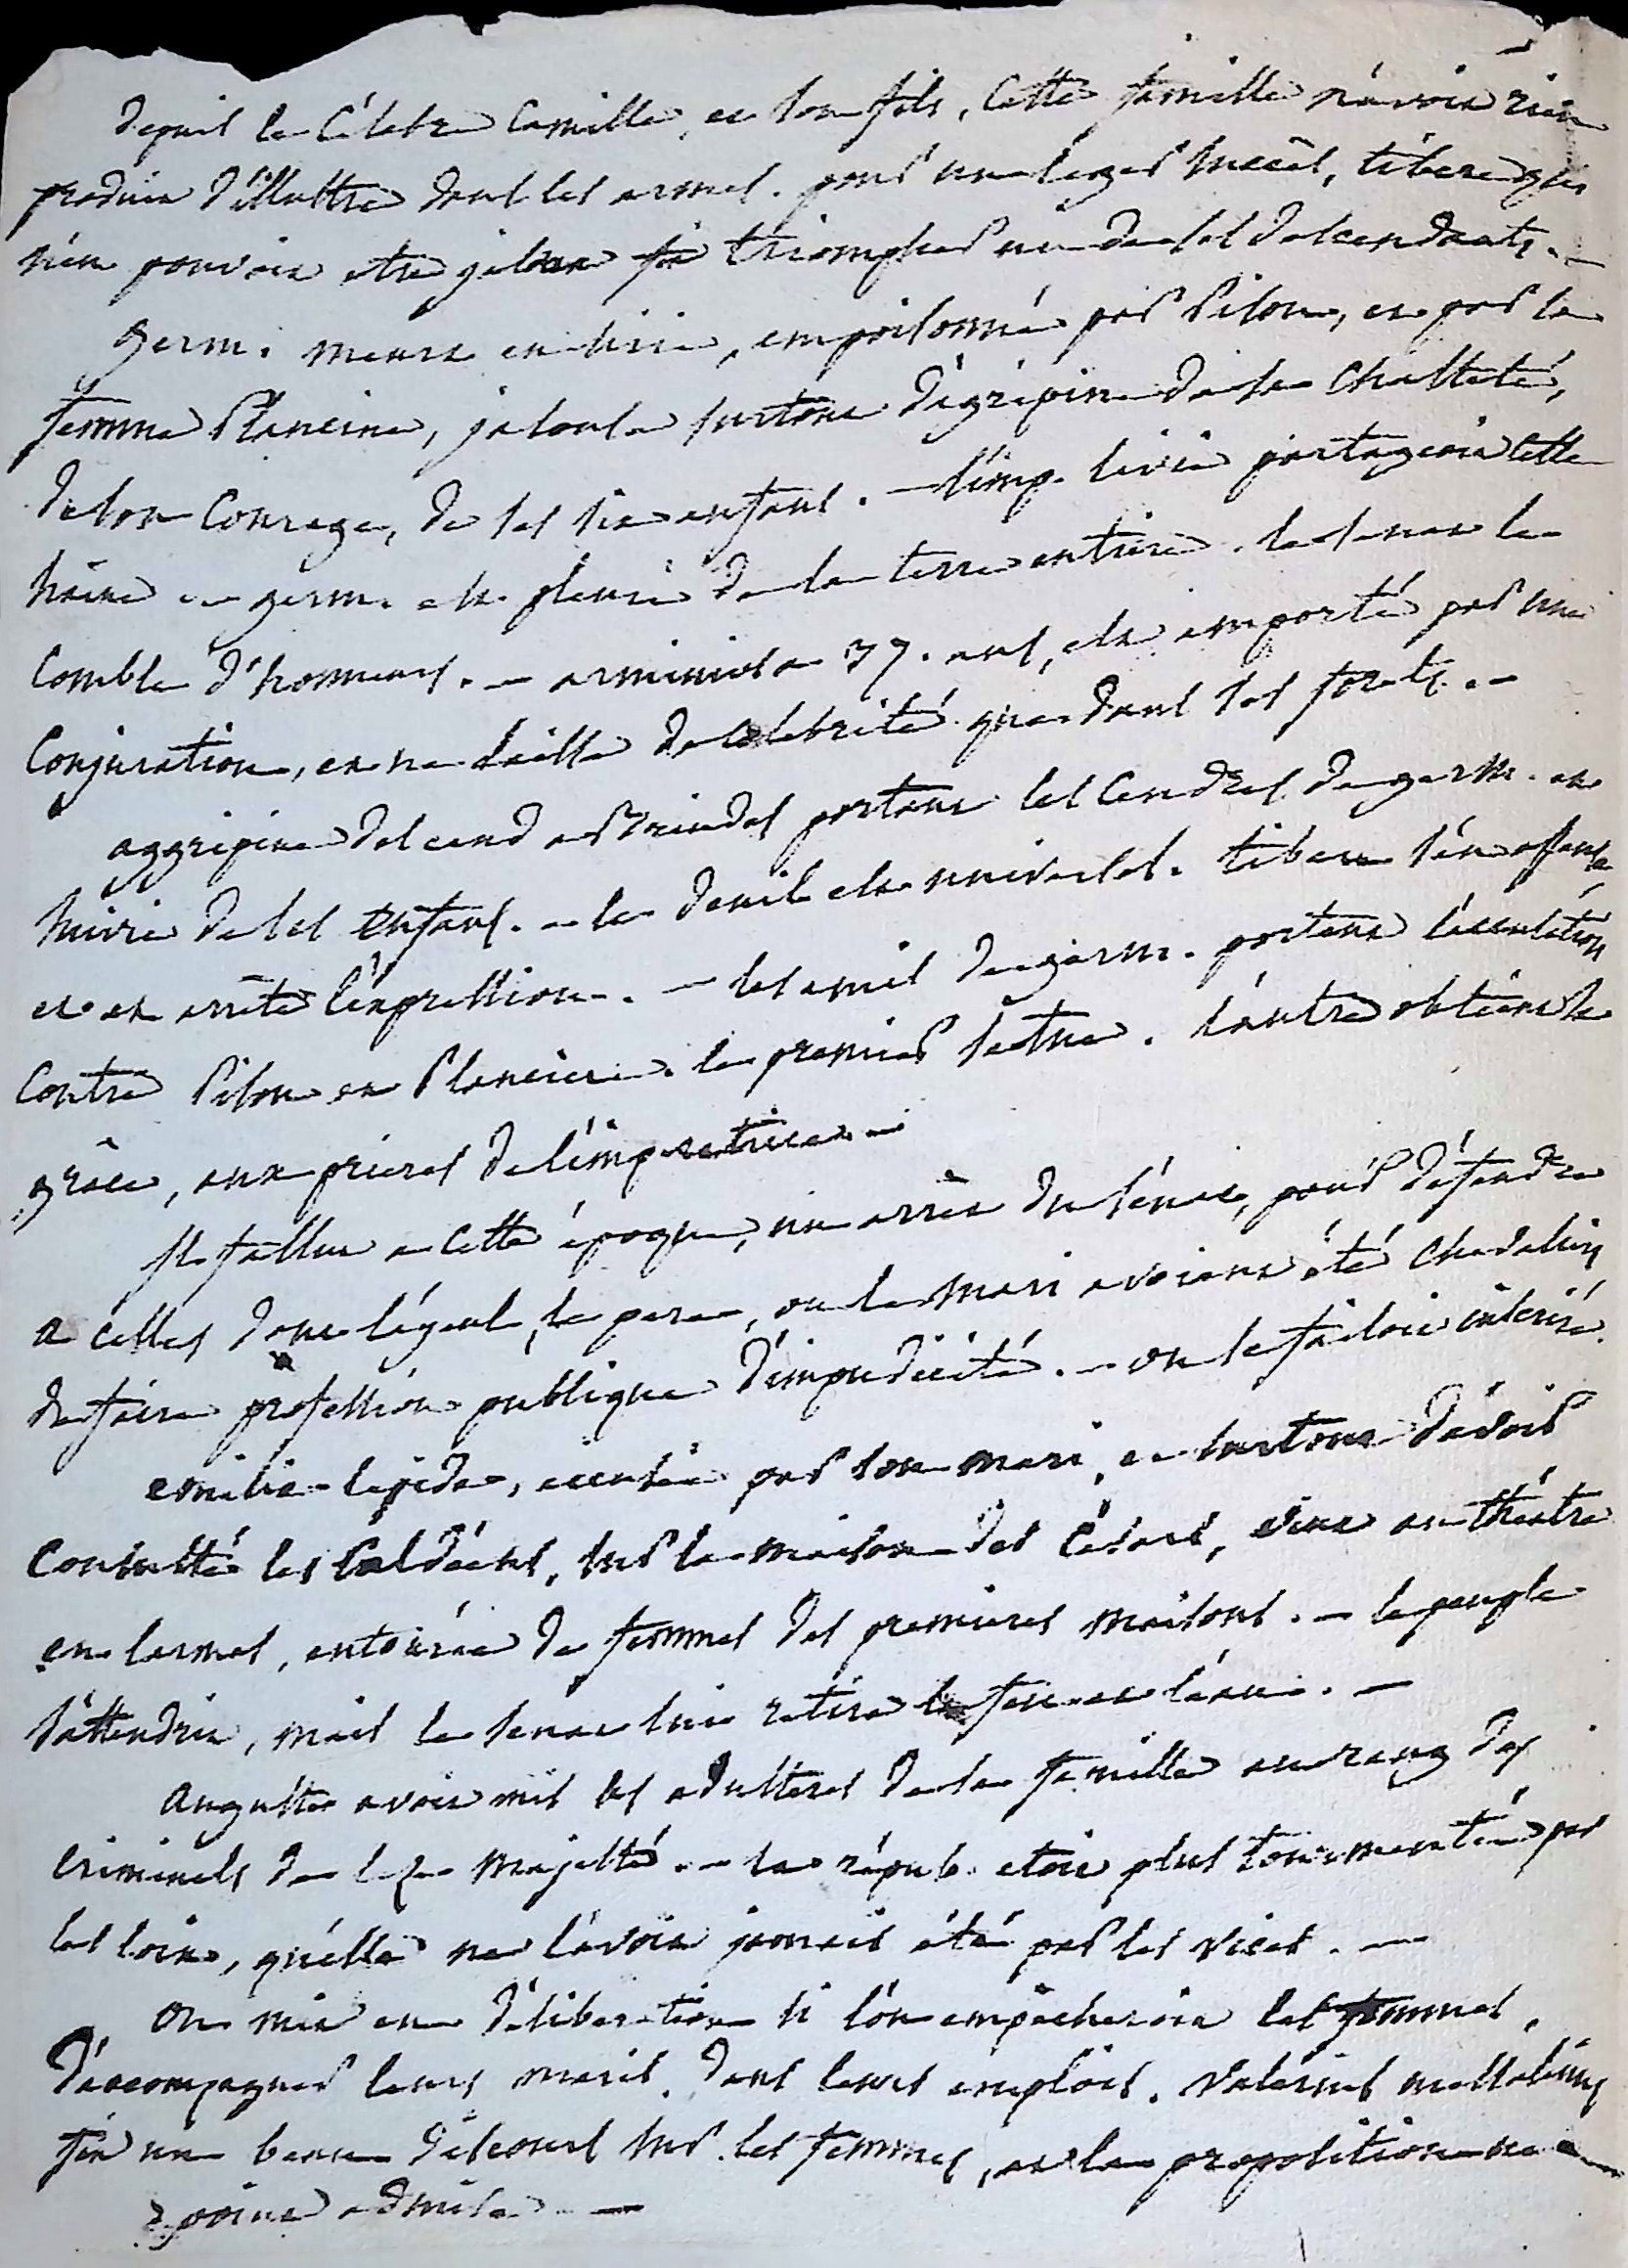 depuis le célebre Camille, et son fils, cette famille n'avoit rien
produit d'illustre dans les armes. pour un leger succès, tibere qui
n'en pouvoit etre jaloux fit triompher un de ses descendants. —
germ. meurt en sirie, empoisonné par Pison, et par sa
femme Plancine, jalouse surtout d'agripine de sa chasteté,
de son courage, de ses six enfans. — l'imp. livie partageoit cette
haine — germ. est pleuré de la terre entiere. le senat le
comble d'honneurs. — arminius a 37. ans, est emporté par une
conjuration, et ne laisse de célébrité que dans ses forets. —
aggripine descend a Brindes portant les cendres de germ. et
suivie de ses enfans. — le deuil est universel. tibere s'en offense
et en arrête l'expression. — les amis de germ. portent l'accusation
contre Pison et Plancine. le premier se tue. l'autre obtient sa
grâce, aux prieres de l'impératrice. —
Il fallut a cette époque, un arrêt du sénat, pour défendre
a celles dont l'ayeul, le pere, ou le mari avoient été chevaliers
de faire profession publique d'impudicité. — on se faisoit inscrire.
emilie lepida, accusée par son mari, et surtout d'avoir
consulté les Caldéens, sur la maison des Césars, vint au théâtre
en larmes, entourée de femmes des premieres maisons. — le peuple
s'attendrit, mais le senat lui retira le feu et l'eau. —
auguste avoit mis les adulteres de sa famille au rang des
criminels de leze majesté. — la répub. etoit plus tourmentée par
les loix, qu'elle ne l'avoit jamais été par les vices. —
on mit en déliberation si l'on empêcheroit les femmes,
d'accompagner leurs maris, dans leurs emplois. valérius messalinus
fit un beau discours sur les femmes, et la proposition ne
point admise —